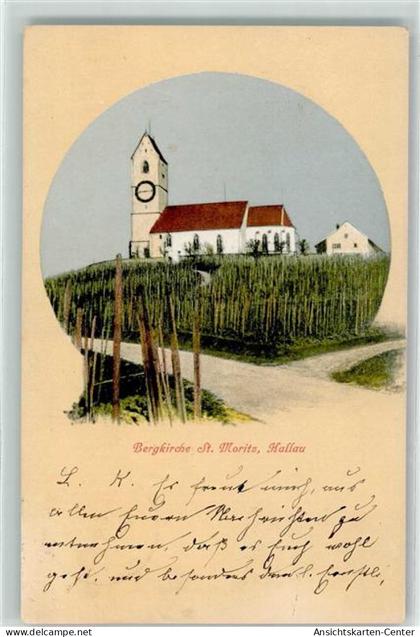 Bergkirche St. Moritz, Hallau
L. K. Es freut mich, aus
allen Euern Nachrichten zu
entnehmen, daß es Euch wohl
geht, und besonders dem l. Ernstli,
Ansichtskarten-Center